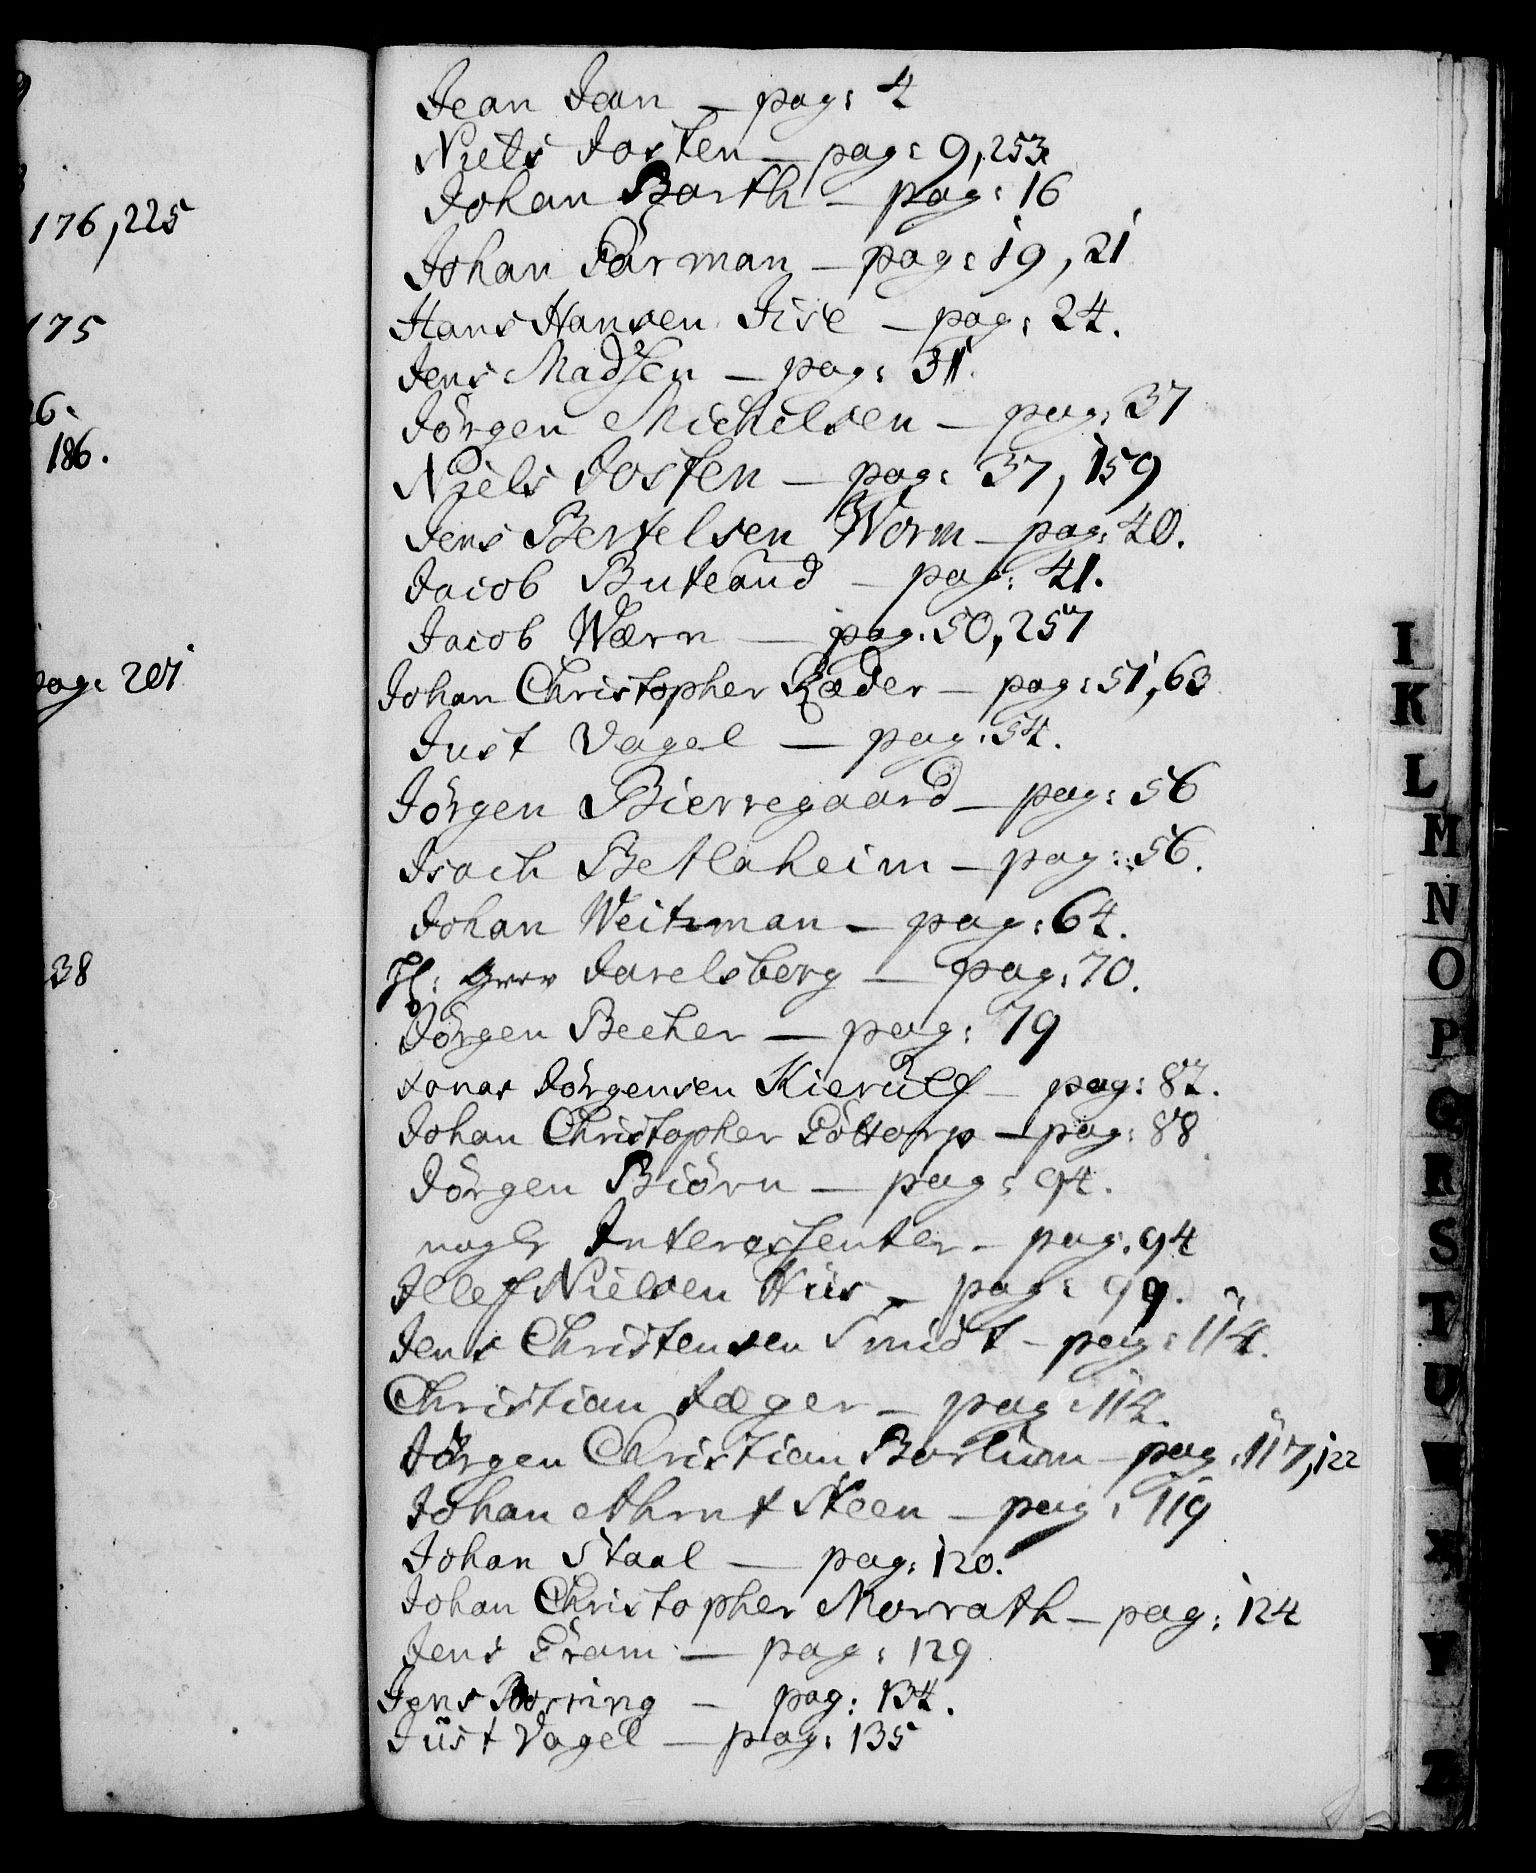 176, 225
175
26.
186.
pag: 201
238
Jean Jean – pag: 4
Niels Josten – pag: 9, 253
Johan Barth – pag: 16
Johan Pärman – pag: 19, 21
Hans Hansen Jise – pag: 24.
Jens Madsen – pag: 31.
Jörgen Michelsen – pag: 37
Niels Josten – pag: 37, 159
Jens Bertelsen Worm – pag: 40.
Jacob Buteaud – pag: 41.
Jacob Wærn – pag. 50, 257
Johan Christopher Ræder – pag: 51, 63
Just Vagel – pag: 54.
Jörgen Bierregaard – pag: 56
Isach Betlaheim – pag: 56.
Johan Weitzman – pag: 64.
H: Grev Jarelsberg – pag: 70.
Jörgen Becher – pag: 79
Jonas Jörgensen Kierülf – pag: 87.
Johan Christopher Göttorp – pag: 88
Jörgen Biörn – pag: 94.
nogle Interessenter – pag. 94
Jllef Nielsen Hüs – pag: 99.
Jens Christensen Smidt – pag: 114.
Christian Jæger – pag: 114.
Jörgen Christian Borlüm – pag: 117, 122
Johan Ahrnt Steen – pag: 119
Johan Staal – pag: 120.
Johan Christopher Morrath – pag: 124
Jens Pram – pag: 129
Jens Borring – pag: 134.
Jüst Vagel – pag: 135
I
K
L
M
N
O
P
Q
R
S
T
U
W
X
Y
Z